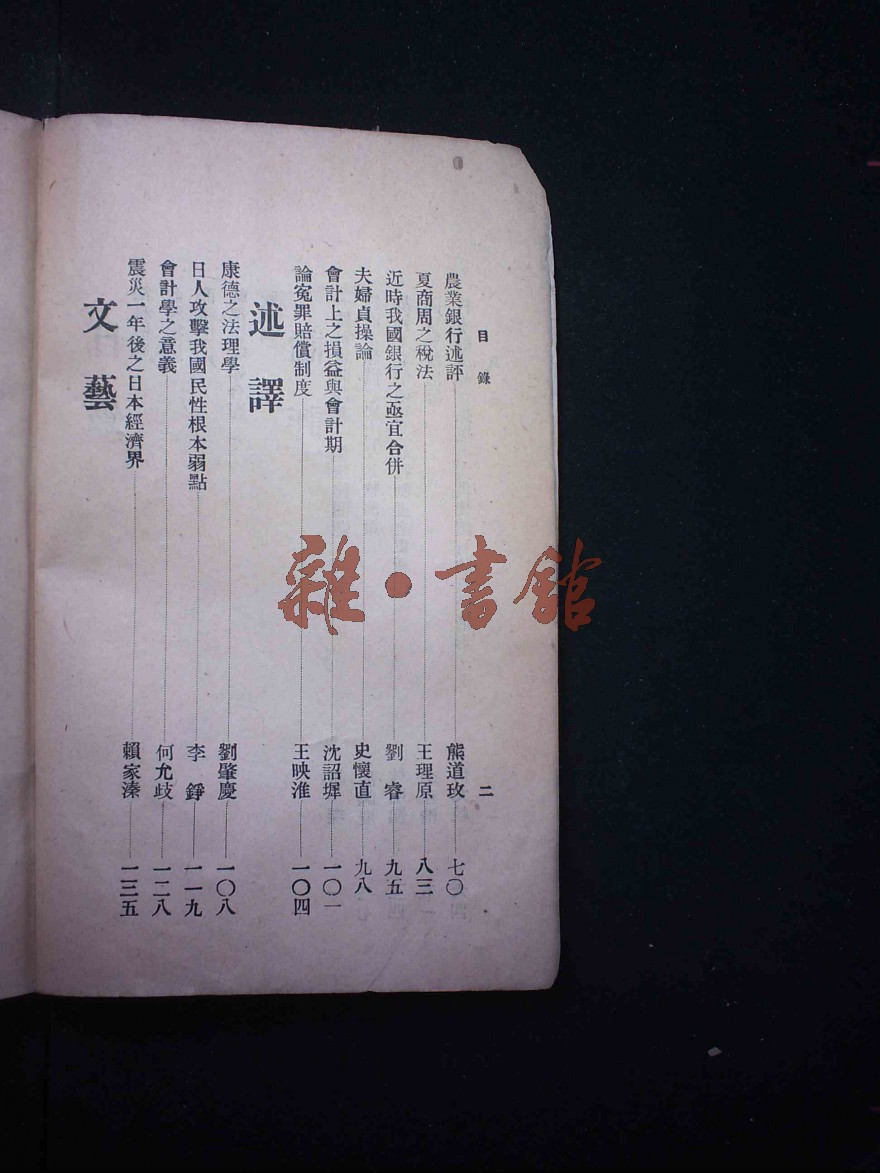 目錄 二
農業銀行述評 熊道玫 七〇
夏商周之稅法 王理原 八三
近時我國銀行之亟宜合併 劉睿 九五
夫婦貞操論 史懷直 九八
會計上之損益與會計期 沈詔墀 一〇一
論冤罪賠償制度 王映淮 一〇四
述譯
康德之法理學 劉肇慶 一〇八
日人攻擊我國民性根本弱點 李錚 一一九
會計學之意義 何允歧 一二八
震災一年後之日本經濟界 賴家溱 一三五
文藝
雜·書館